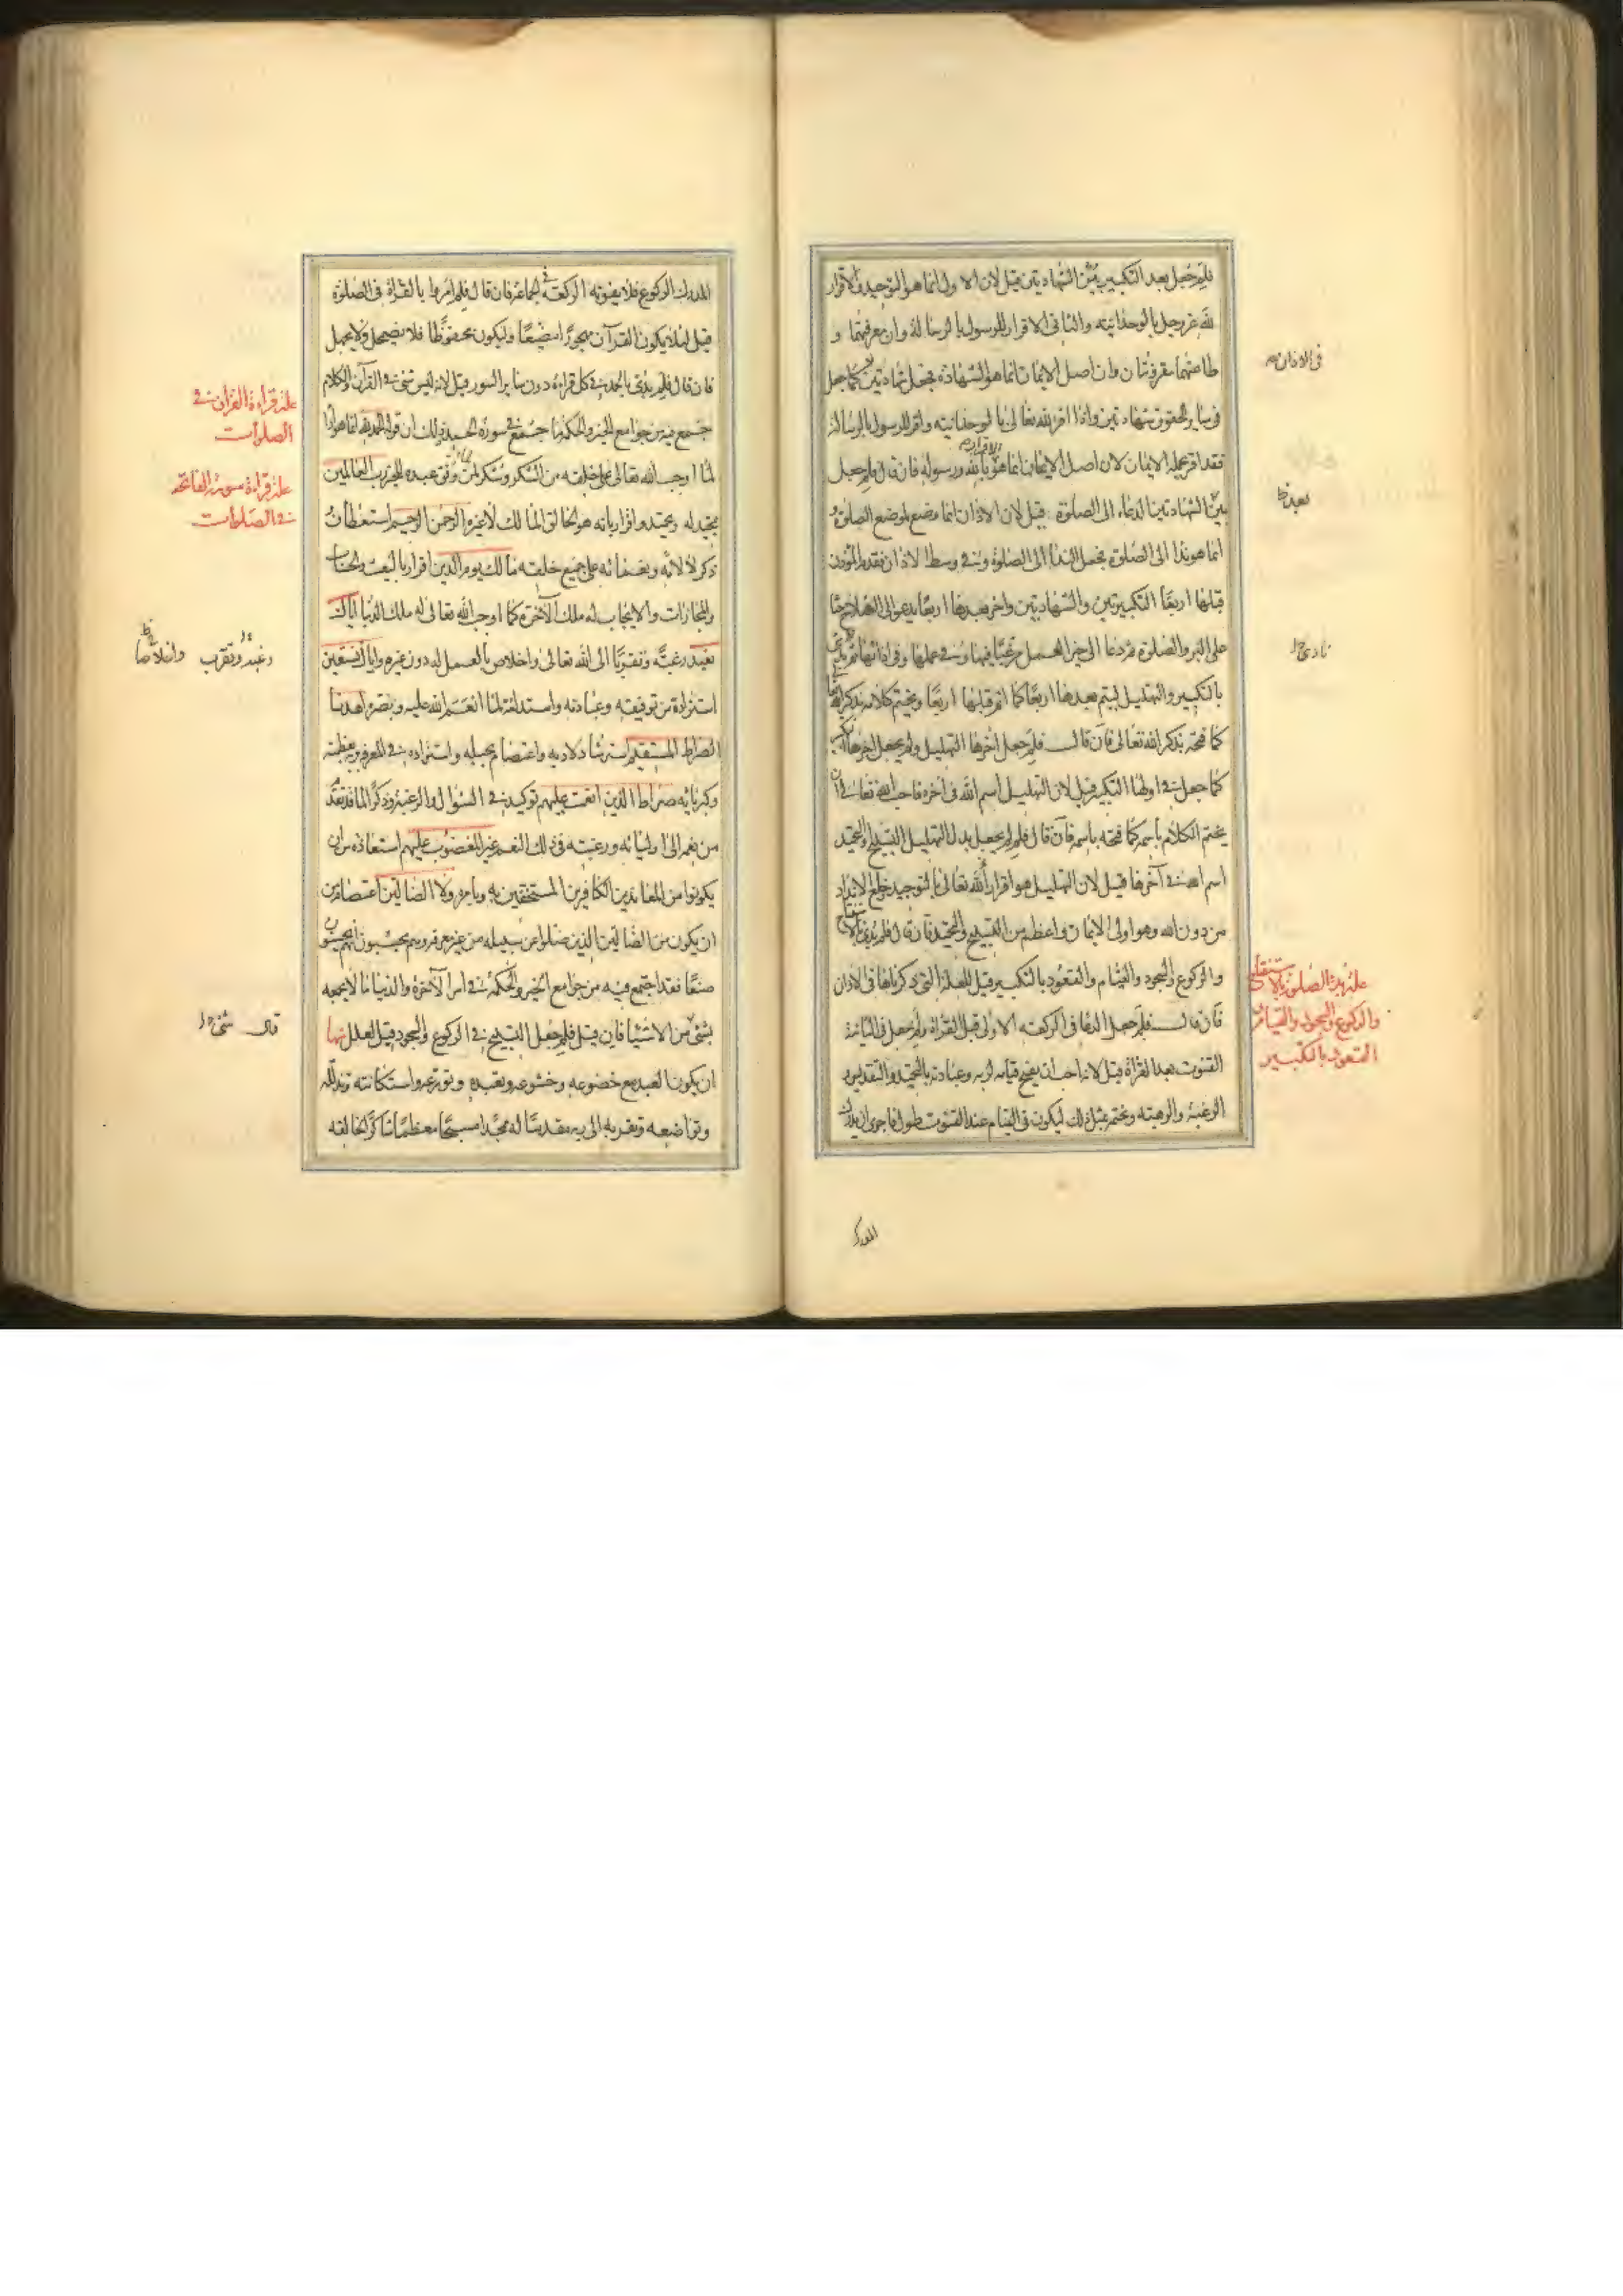 فلم جعل بعد التكبير بين الشهادتين قيل لان الاول انما هو التوحيد والاقرار
لله عز وجل بالوحدانيته والثاني الاقرار للرسول بالرسالة وان معرفتهما و
طاعتهما مقرونتان وان اصل الايمان انما هو الشهادة فجعل شهادتين كما جعل
في ساير الحقوق شهادتين واذا اقر لله تعالى بالوحدانيته واقر للرسول بالرسالة
فقد اقر بجملة الايمان لان اصل الايمان انما هو بالله ورسوله فان قال فلم جعل
بين الشهادتين الدعاء الى الصلوة قيل لان الاذان انما وضع لموضع الصلوة و
انما هو نداء الى الصلوة فجعل النداء الى الصلوة في وسط الاذان فقدم المؤذن
قبلها اربعا التكبيرتين والشهادتين واخر بعدها اربعا يدعو الى الفلاح حثا
على البر والصلوة ثم دعا الى خير العمل مرغبا فيها وفي عملها وفي ادائها ثم
بالتكبير والتهليل ليتم بعدها اربعا كما اتم قبلها اربعا ويختم كلامه بذكر الله
كما فتحه بذكر الله تعالى فان قال فلم جعل اخرها التهليل ولم يجعل اخرها التكبير
كما جعل في اولها التكبير قيل لان التهليل اسم الله في اخره فاحب الله تعالى ان
يختم الكلام باسمه كما فتحه باسمه فان قال فلم لم يجعل بدل التهليل التسبيح والتحميد
اسم الله في آخرها قيل لان التهليل هو اقرار لله تعالى بالتوحيد وخلع الانداد
من دون الله وهو اول الايمان واعظم من التسبيح والتحميد فان قال فلم بدئ بالاستفتاح
والركوع والسجود والقيام والقعود بالتكبير قيل للعلة التي ذكرناها في الاذان
فان قال فلم جعل الدعا في الركعته الاولى قبل القراة ولم جعل في الثانية
القنوت بعد القراة قيل لانه احب ان يفتح قيامه لربه وعبادته بالتحميد والتقديس و
الرغبة والرهبته ويختمه بمثل ذلك ليكون في القيام عند القنوت طول فاحرى ان يدرك
في الاذان
بعد
نادى
علة بدء الصلوة بالاستفتاح
والركوع والسجود والقيام و
القعود بالتكبير
المدرك
المدرك الركوع فلا يفوته الركعة في الجماعة فان قال فلم امروا بالقراة في الصلوة
قيل لئلا يكون القرآن مهجورا مضيعا وليكون محفوظا فلا يضمحل ولا يجهل
فان قال فلم بدئ بالحمد في كل قراءة دون ساير السور قيل لانه ليس شئ في القرآن والكلام
جمع فيه من جوامع الخير والحكمة ما جمع في سورة الحمد وذلك ان قوله الحمد لله انما هو اداء
لما اوجب الله تعالى على خلقه من الشكر وشكر لما وفق عبده للخير رب العالمين
تمجيد له وتحميد واقرار بانه هو الخالق المالك لا غيره الرحمن الرحيم استعطاف و
ذكر لآلائه ونعمائه على جميع خلقه مالك يوم الدين اقرار بالبعث والحساب
والمجازات والايجاب له ملك الآخرة كما اوجب الله تعالى له ملك الدنيا اياك
نعبد رغبة وتقربا الى الله تعالى واخلاص بالعمل له دون غيره واياك نستعين
استزادة من توفيقه وعبادته واستدامة لما انعم الله عليه وبصره اهدنا
الصراط المستقيم استرشاد لادبه واعتصام بحبله واستزاده في المعرفة بعظمته
وكبريائه صراط الذين انعمت عليهم توكيد في السؤال والرغبة وذكر لما قد تقدم
من نعمه الى اوليائه ورغبته في ذلك النعم غير المغضوب عليهم استعاذة من ان
يكونوا من المعاندين الكافرين المستخفين به وبامره ولا الضالين اعتصام من
ان يكون من الضالين الذين ضلوا عن سبيله من غير معرفة وهم يحسبون انهم يحسنون
صنعا فقد اجتمع فيه من جوامع الخير والحكمة في امر الآخرة والدنيا ما لا يجمعه
شئ من الاشيا فان قيل فلم جعل التسبيح في الركوع والسجود قيل لعلل منها
ان يكون العبد مع خضوعه وخشوعه وتعبده وتورعه واستكانته وتذلله
وتواضعه وتقربه الى ربه مقدسا له ممجدا مسبحا معظما شاكرا لخالقه
علة قراءة القران في
الصلوات
علة قراءة سورة الفاتحة
في الصلوات
رغبة وتقرب واخلاصا
قال شئ